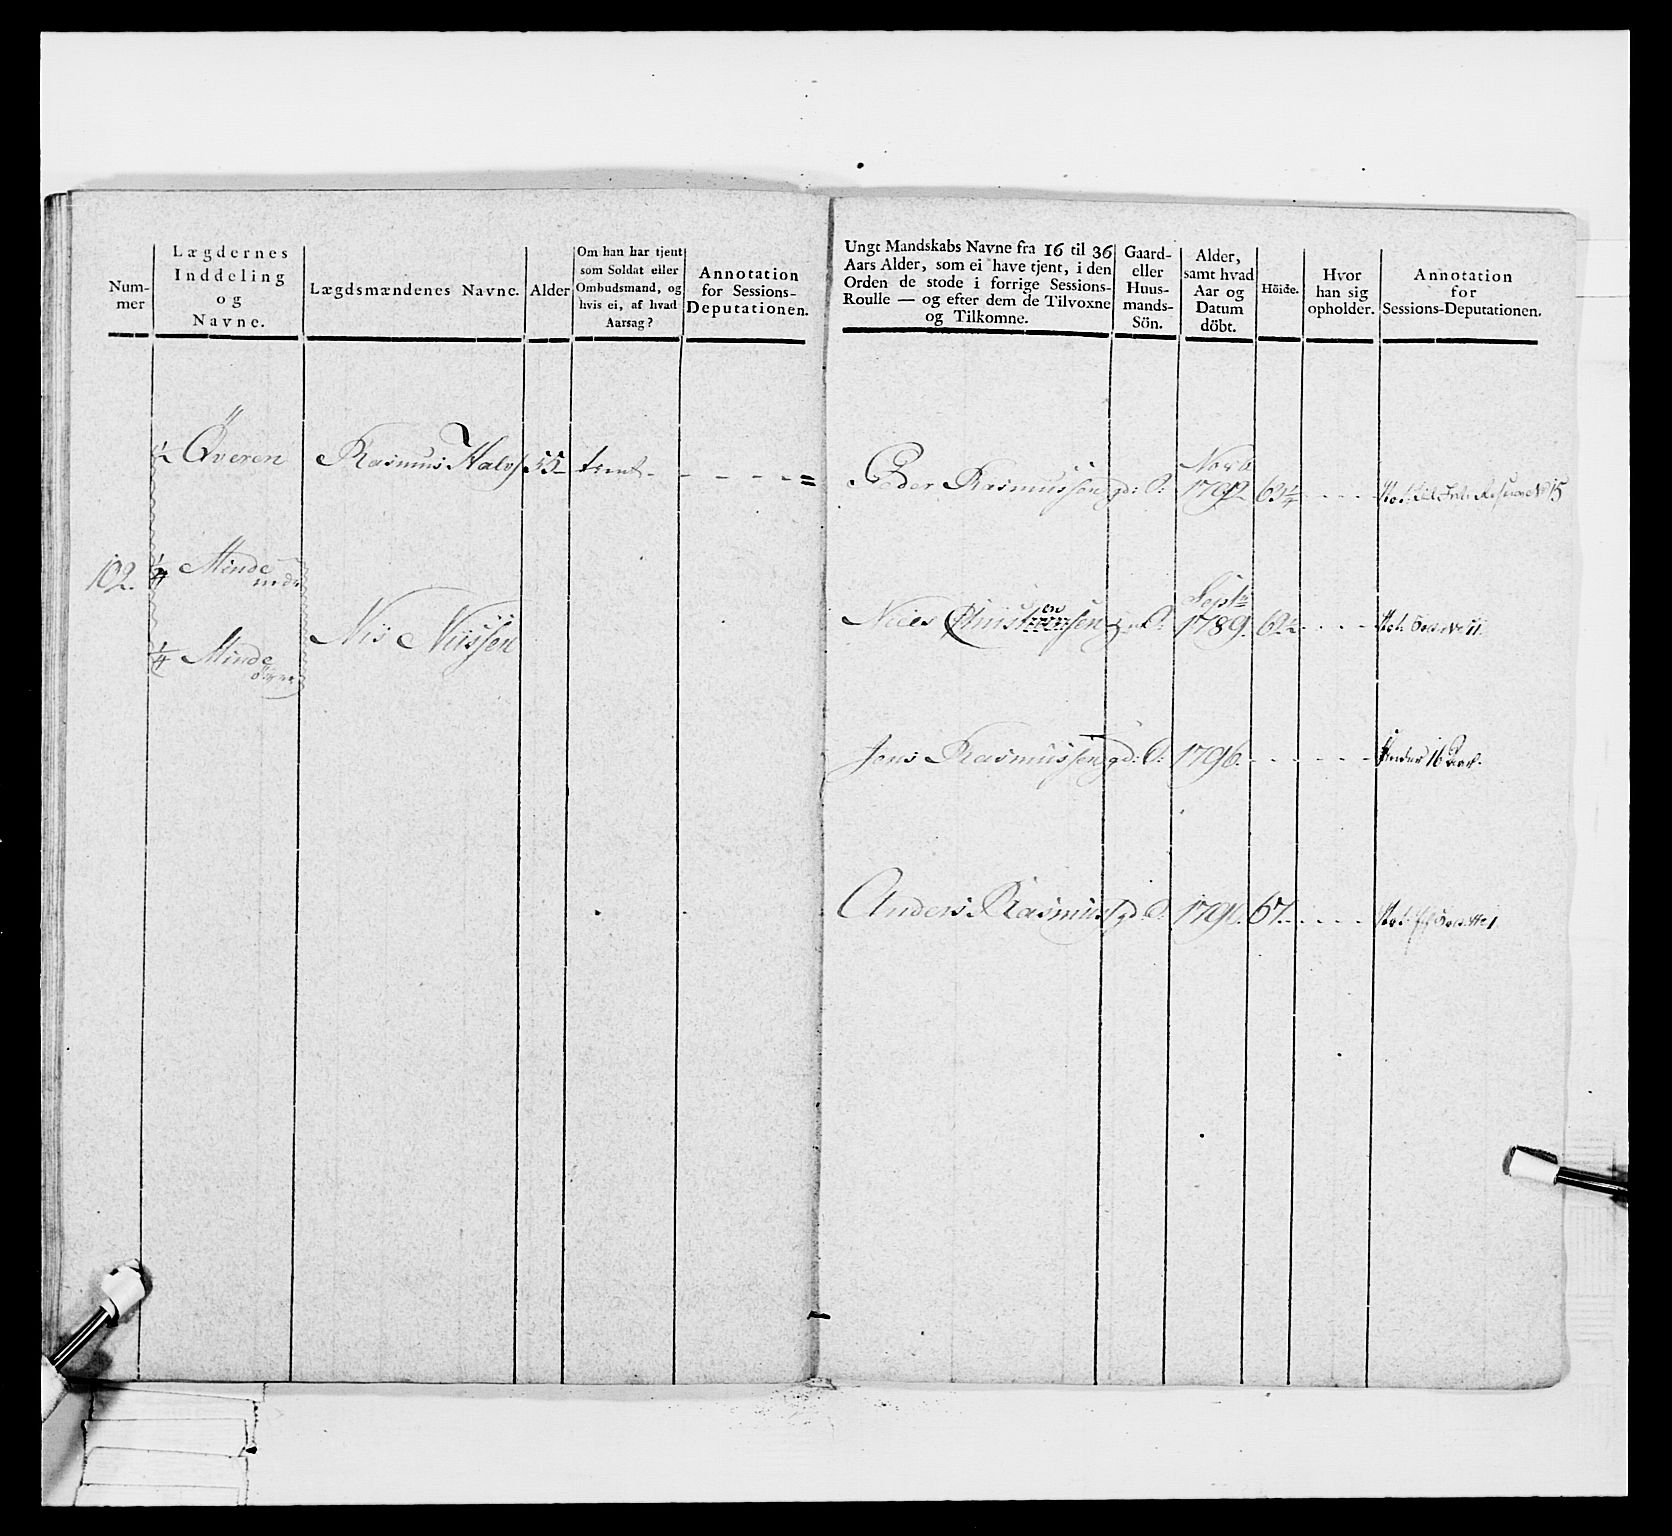 Num-
mer
Lægdernes
Inddeling
og
Navne.
Lægdsmændenes Navne.
Alder
Om han har tjent
som Soldat eller
Ombudsmand, og
hvis ei, af hvad
Aarsag?
Annotation
for Sessions-
Deputationen.
½ Qveren Rasmus Halvs 55
102. ¼ Minde
nedr
¼ Minde
Nis Niissen
Ungt Mandskabs Navne fra 16 til 36
Aars Alder, som ei have tjent, i den
Orden de stode i forrige Sessions-
Roulle — og efter dem de Tilvoxne
og Tilkomne.
Gaard-
eller
Huus-
mands-
Sön.
Alder,
samt hvad
Aar og
Datum
döbt.
Höide.
Hvor
han sig
opholder.
Annotation
for
Sessions-Deputationen.
Novb
Peder Rasmussen gd: S: 1792 63¼
Septr
Niels Christensen S: 1789. 62
Jens Rasmussen gd: S: 1796. Under 16 Aar.
Anders Rasmus gd: S: 1790. 67.